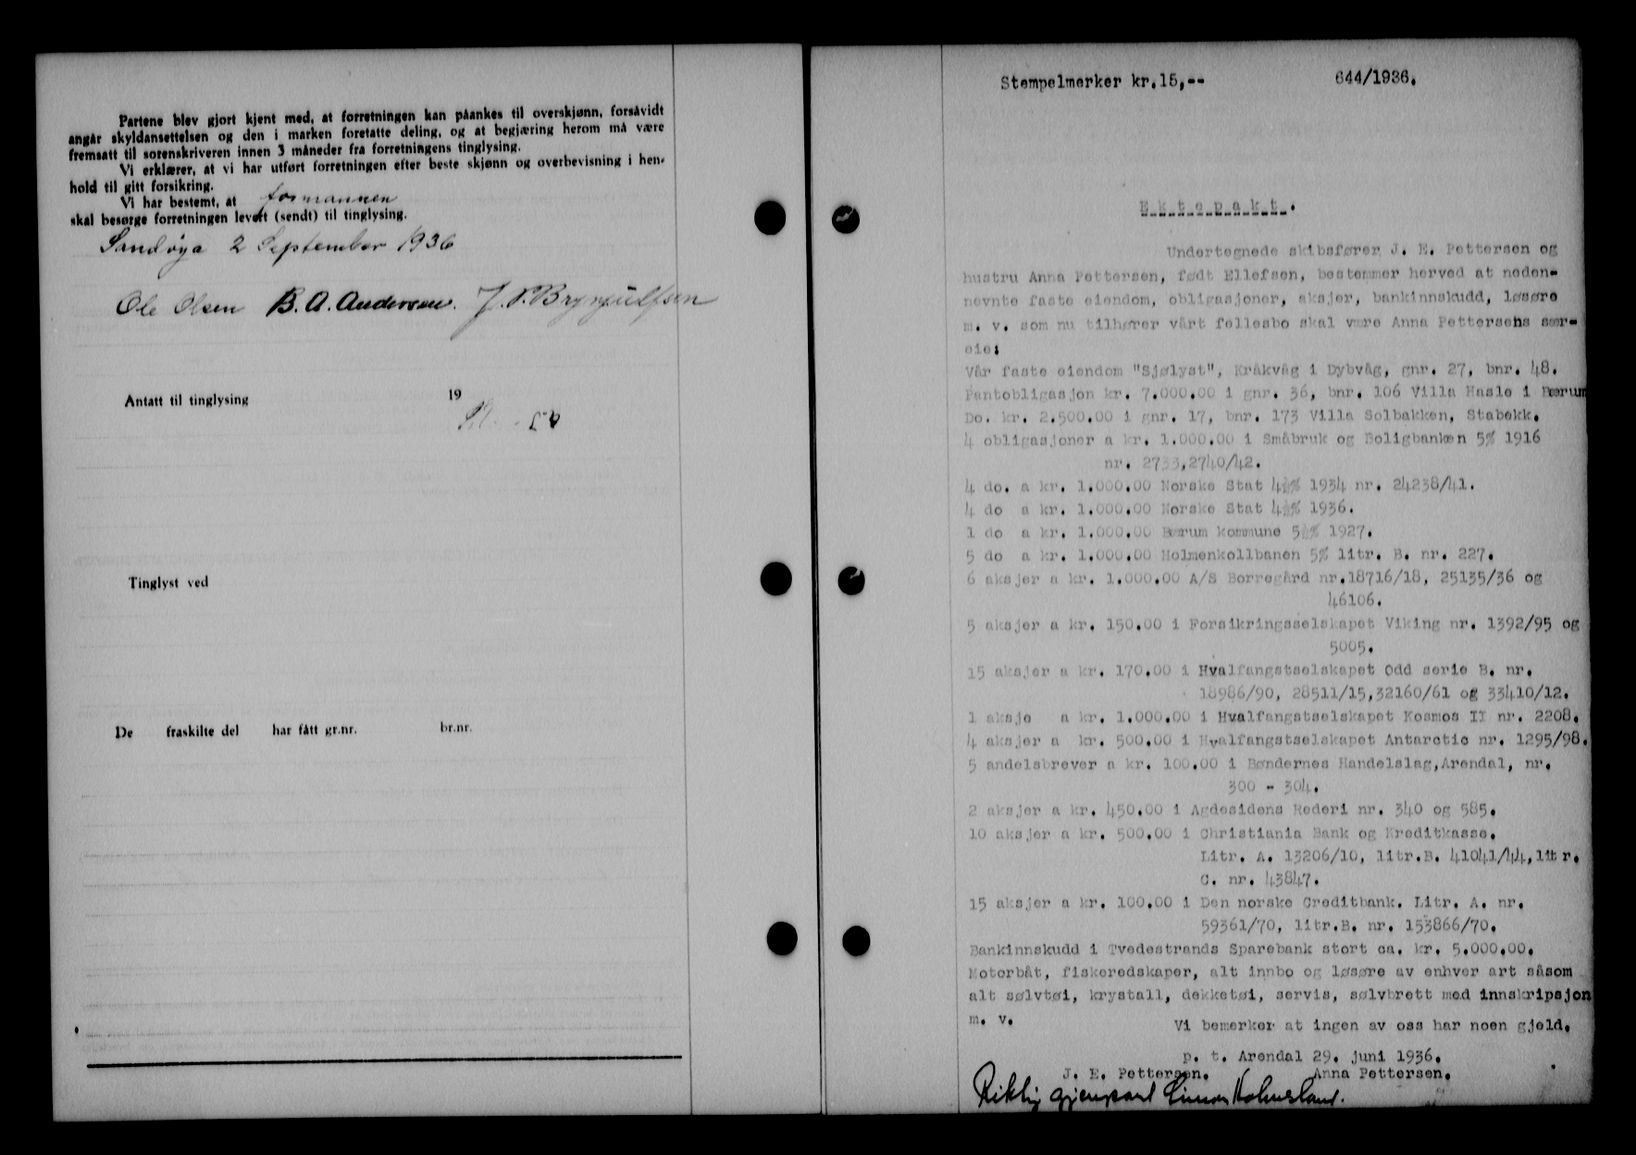 Partene blev gjort kjent med, at forretningen kan påankes til overskjønn, forsåvidt
angår skyldansettelsen og den i marken foretatte deling, og at begjæring herom må være
fremsatt til sorenskriveren innen 3 måneder fra forretningens tinglysing.
Vi erklærer, at vi har utført forretningen efter beste skjønn og overbevisning i hen-
hold til gitt forsikring.
Vi har bestemt, at formannen
skal besørge forretningen levert (sendt) til tinglysing.
Sandøya 2 September 1936
Ole Olsen B. A. Andersen. J. P. Brynjulfsen
Antatt til tinglysing 19
Tinglyst ved
De fraskilte del har fått gr.nr. br.nr.
Stempelmerker kr.15,-- 644/1936.
Ektepakt.
Undertegnede skibsfører J. E. Pettersen og
hustru Anna Pettersen, født Ellefsen, bestemmer herved at neden-
nevnte faste eiendom, obligasjoner, aksjer, bankinnskudd, løsøre
m. v. som nu tilhører vårt fellesbo skal være Anna Pettersens sær-
eie:
Vår faste eiendom "Sjølyst", Kråkvåg i Dybvåg, gnr. 27, bnr. 48.
Pantobligasjon kr. 7.000.00 i gnr. 36, bnr. 106 Villa Hasle i Bærum
Do. kr. 2.500.00 i gnr. 17, bnr. 173 Villa Solbakken, Stabekk.
4 obligasjoner a kr. 1.000.00 i Småbruk og Boligbanken 5% 1916
nr. 2733,2740/42.
4 do. a kr. 1.000.00 Norske Stat 4½% 1934 nr. 24238/41.
4 do a kr. 1.000.00 Norske Stat 4½% 1936.
1 do a kr. 1.000.00 Bærum kommune 5½% 1927.
5 do a kr. 1.000.00 Holmenkollbanen 5% litr. B. nr. 227.
6 aksjer a kr. 1.000.00 A/S Borregård nr.18716/18, 25135/36 og
46106.
5 aksjer a kr. 150.00 i Forsikringsselskapet Viking nr. 1392/95 og
5005.
15 aksjer a kr. 170.00 i Hvalfangstselskapet Odd serie B. nr.
18986/90, 28511/15,32160/61 og 33410/12.
1 aksje a kr. 1.000.00 i Hvalfangstselskapet Kosmos II nr. 2208.
4 aksjer a kr. 500.00 i Hvalfangstselskapet Antarctic nr. 1295/98.
5 andelsbrever a kr. 100.00 i Bøndernes Handelslag,Arendal, nr.
300 - 304.
2 aksjer a kr. 450.00 i Agdesidens Rederi nr. 340 og 585.
10 aksjer a kr. 500.00 i Christiania Bank og Kreditkasse.
Litr. A. 13206/10, litr.B. 41041/44,litr.
C. nr. 43847.
15 aksjer a kr. 100.00 i Den norske Creditbank. Litr. A. nr.
59361/70, litr.B. nr. 153866/70.
Bankinnskudd i Tvedestrands Sparebank stort ca. kr. 5.000.00.
Motorbåt, fiskeredskaper, alt innbo og løsøre av enhver art såsom
alt sølvtøi, krystall, dekketøi, servis, sølvbrett med innskripsjon
m. v.
Vi bemerker at ingen av oss har noen gjeld.
p. t. Arendal 29. juni 1936.
J. E. Pettersen. Anna Pettersen.
Riktig gjenpart Simon Holmesland.